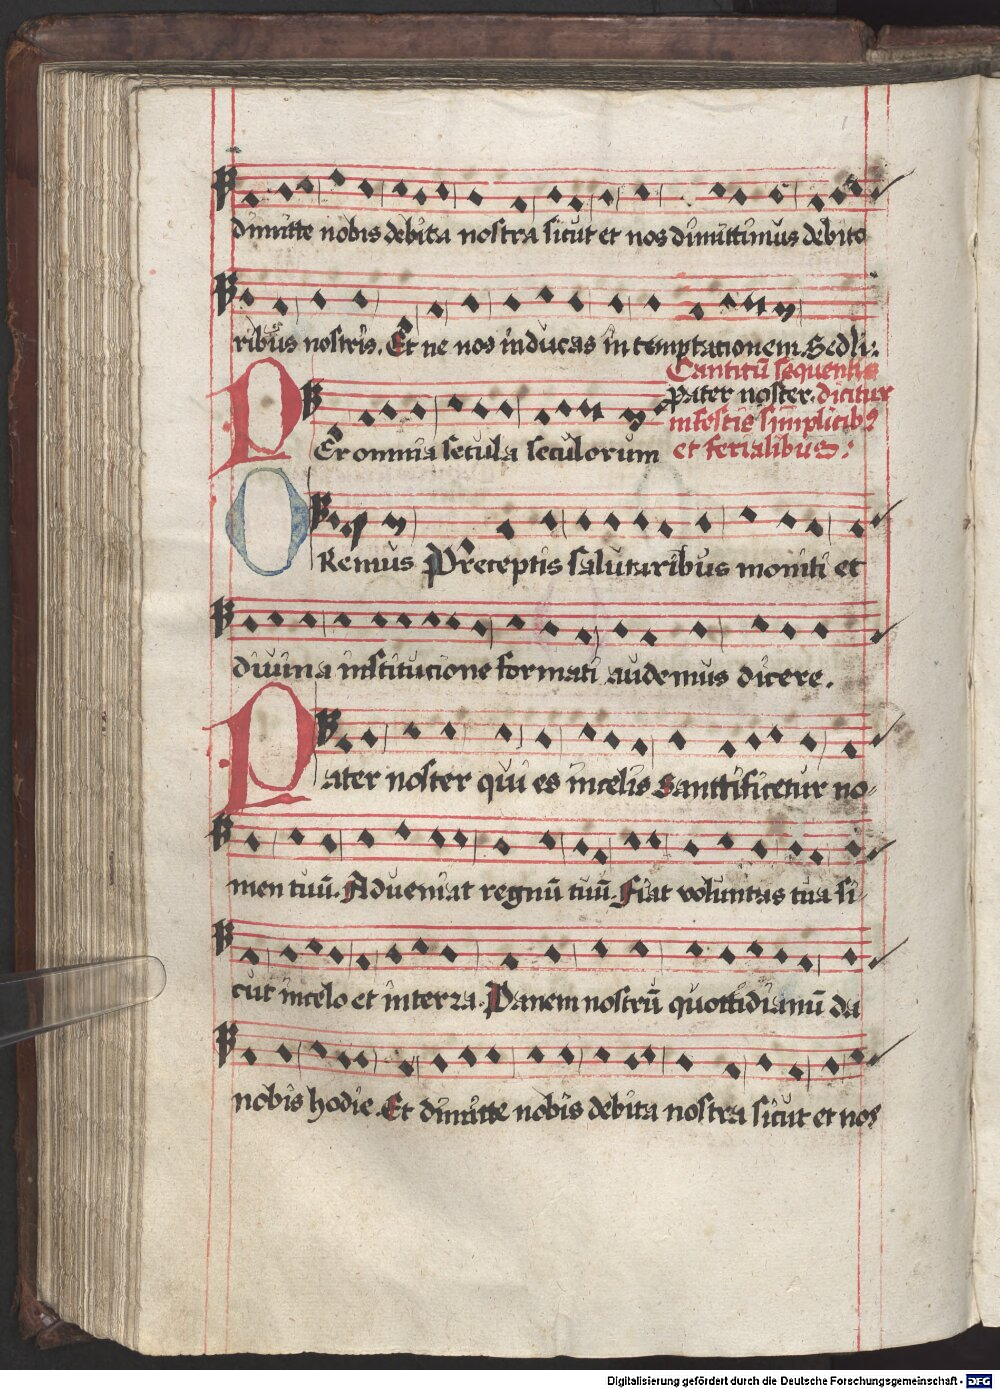 dimitte nobis debita nostra sicut et nos dimittimus debito
ribus nostris. Et ne nos inducas in temptationem. Sed li:
Canticū sequentis
Pater noster. dicitur
in festis simplicib9
et ferialibus:
Per omnia secula seculorum
ORemus Preceptis salutaribus moniti et
diuina institucione formati audemus dicere.
Pater noster qui es in celis Sanctificetur no-
men tuū. Adueniat regnū tuū. Fiat voluntas tua si-
cut in celo et in terra. Panem nostrū quottidianū da
nobis hodie. Et dimitte nobis debita nostra sicut et nos
Digitalisierung gefördert durch die Deutsche Forschungsgemeinschaft - DFG